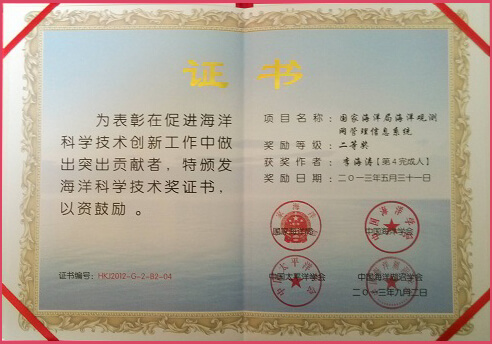 证书
为表彰在促进海洋
科学技术创新工作中做
出突出贡献者，特颁发
海洋科学技术奖证书，
以资鼓励。
证书编号：HKJ2012-G-2-B2-04
项目名称：国家海洋局海洋观测
网管理信息系统
奖励等级：二等奖
获奖作者：李海涛【第4完成人】
奖励日期：二〇一三年五月三十一日
国家海洋局
中国海洋学会
中国太平洋学会
中国海洋湖沼学会
二〇一三年九月二日